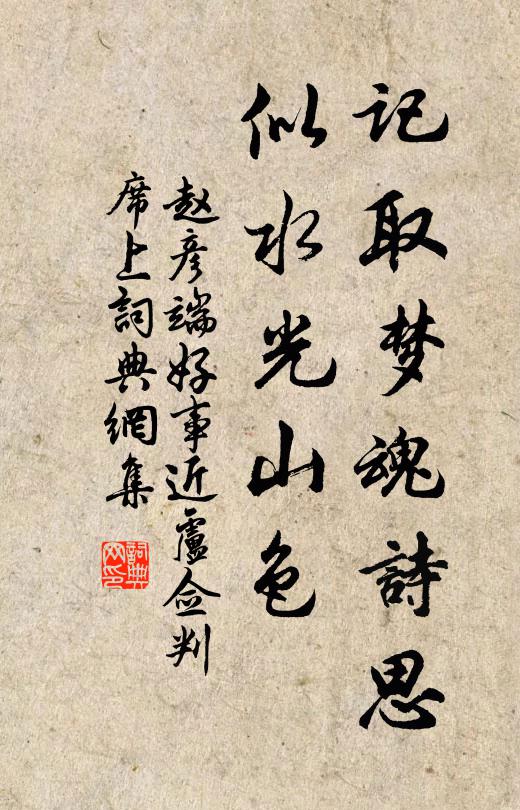 记取梦魂詩思
似水光山色
赵彦端好事近盧佥判
席上詞典網集
詞典
网印